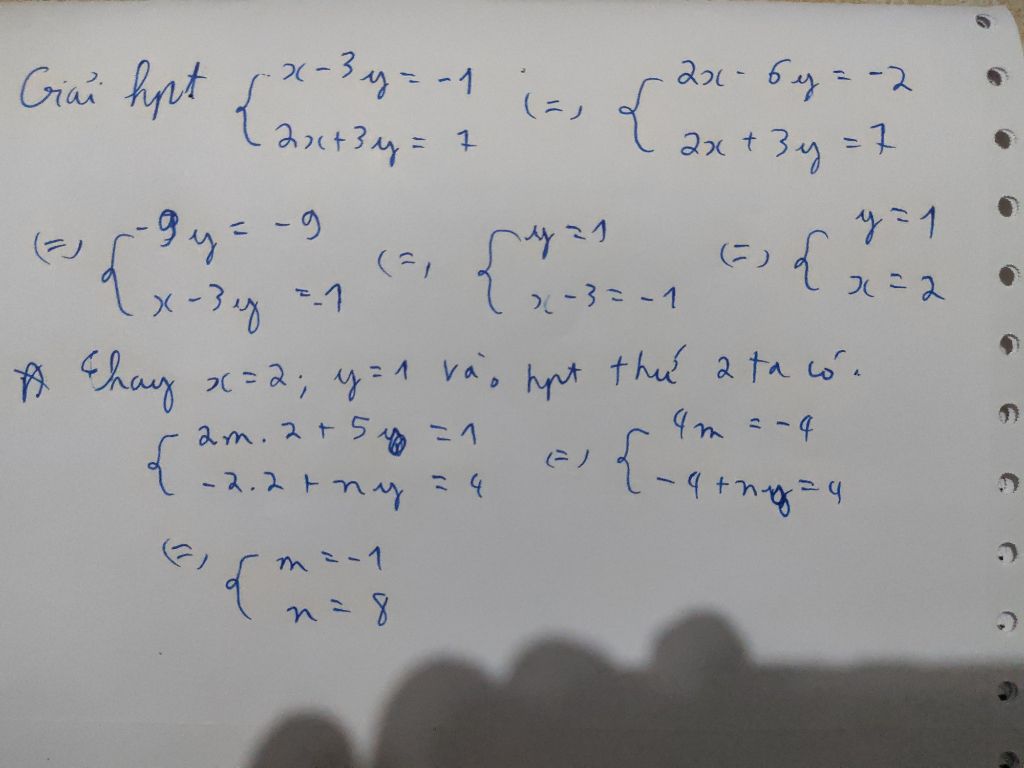 Giải hpt { x - 3y = -1 (=) { 2x - 6y = -2
2x + 3y = 7 2x + 3y = 7
(=) { -9y = -9 (=) { y = 1 (=) { y = 1
x - 3y = -1 x - 3 = -1 x = 2
Thay x = 2; y = 1 vào hpt thứ 2 ta có.
{ 2m.2 + 5 = 1 (=) { 4m = -4
-2.2 + ny = 4 -4 + n = 4
(=) { m = -1
n = 8